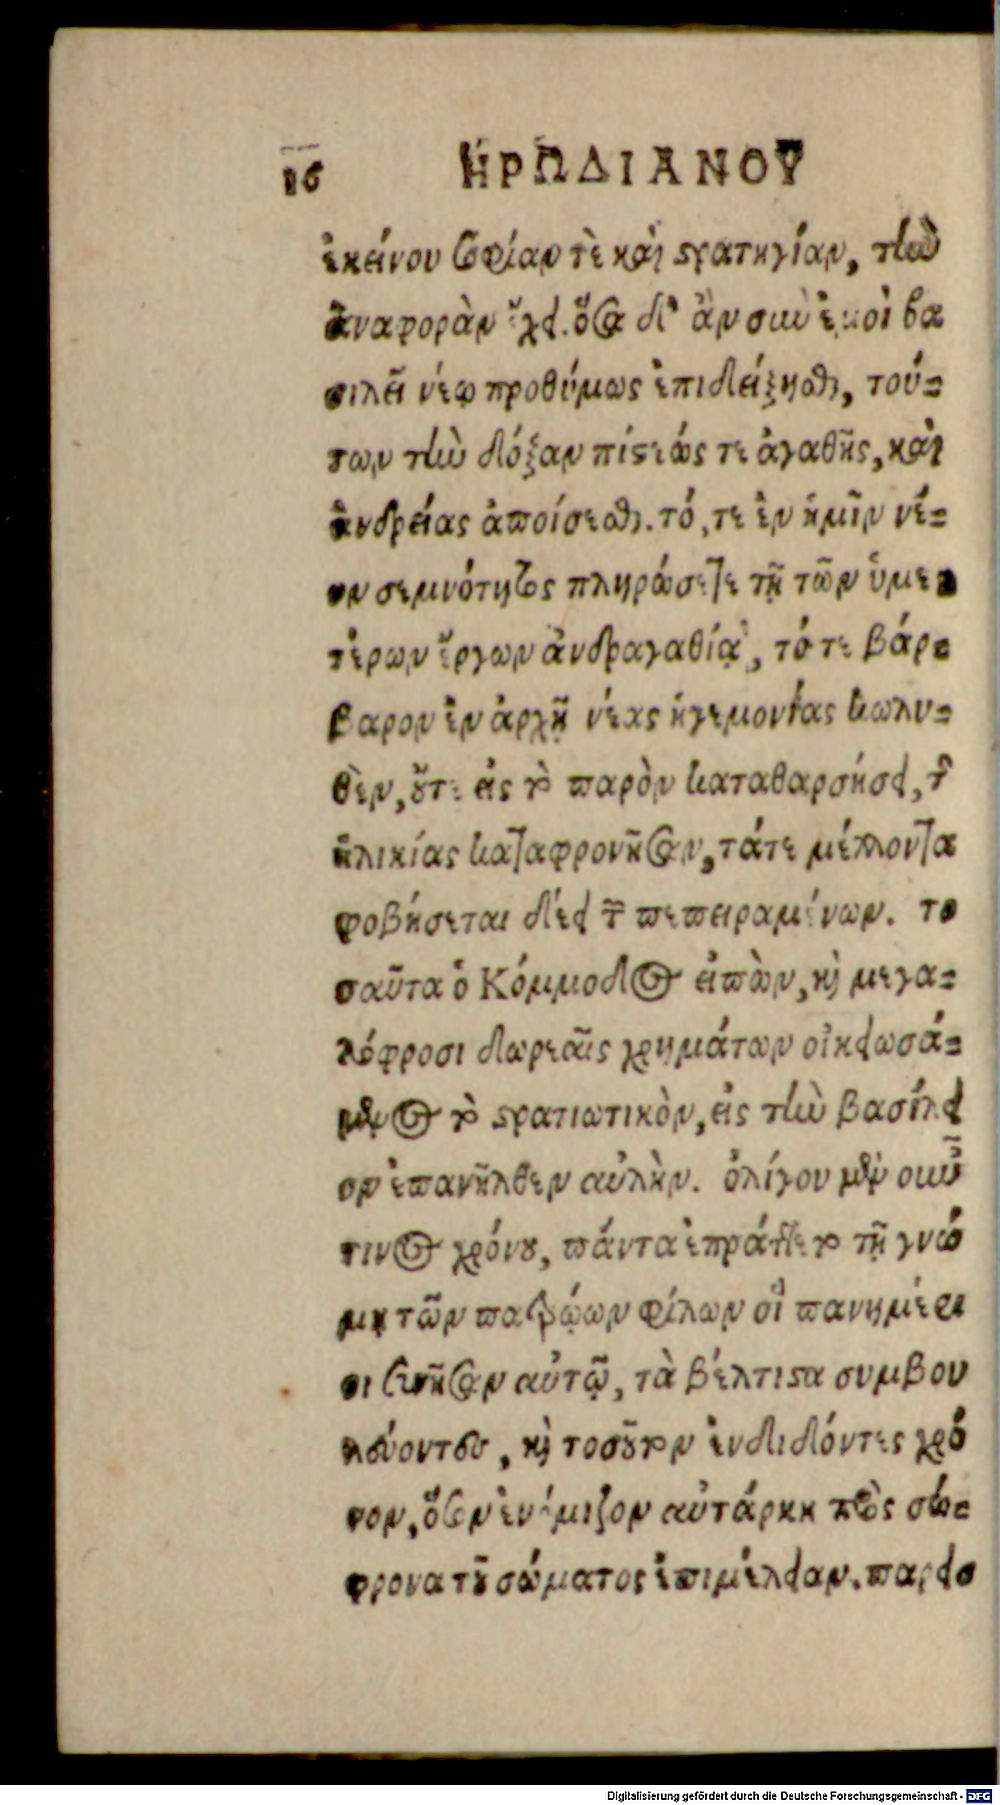 16 ΗΡΩΔΙΑΝΟΥ
ἐκείνου σοφίαν τὲ καὶ στρατηγίαν, τὴν
ἀναφορὰν ἔχει. ὅσα δι' ἂν σὺν ἐμοὶ βα
σιλεῖ νέῳ προθύμως ἐπιδείξησθε, τού-
των τὴν δόξαν πίστεώς τε ἀγαθῆς, καὶ
ἀνδρείας ἀποίσεσθε. τό, τε ἐν ἡμῖν νέ-
ον σεμνότητος πληρώσετε τῇ τῶν ὑμε-
τέρων ἔργων ἀνδραγαθίᾳ, τό τε βάρ-
βαρον ἐν ἀρχῇ νέας ἡγεμονίας κωλυ-
θὲν, οὔτε εἰς τὸ παρὸν καταθαρσήσει, τῆς
ἡλικίας καταφρονῆσαν, τά τε μέλλοντα
φοβήσεται δέει τῶν πεπειραμένων. το
σαῦτα ὁ Κόμμοδος εἰπὼν, καὶ μεγα-
λόφροσι δωρεαῖς χρημάτων οἰκειωσά-
μενος τὸ στρατιωτικὸν, εἰς τὴν βασίλει
ον ἐπανῆλθεν αὐλήν. ὀλίγου μὲν οὖν
τινος χρόνου, πάντα ἐπράττετο τῇ γνώ
μῃ τῶν πατρῴων φίλων οἳ πανημέρι
οι συνῆσαν αὐτῷ, τὰ βέλτιστα συμβου
λεύοντες, καὶ τοσοῦτον ἐνδιδόντες χρό
νον, ὅσον ἐνόμιζον αὐτάρκη πρὸς σώ-
φρονα τοῦ σώματος ἐπιμέλειαν. παρεισ
Digitalisierung gefördert durch die Deutsche Forschungsgemeinschaft - DFG